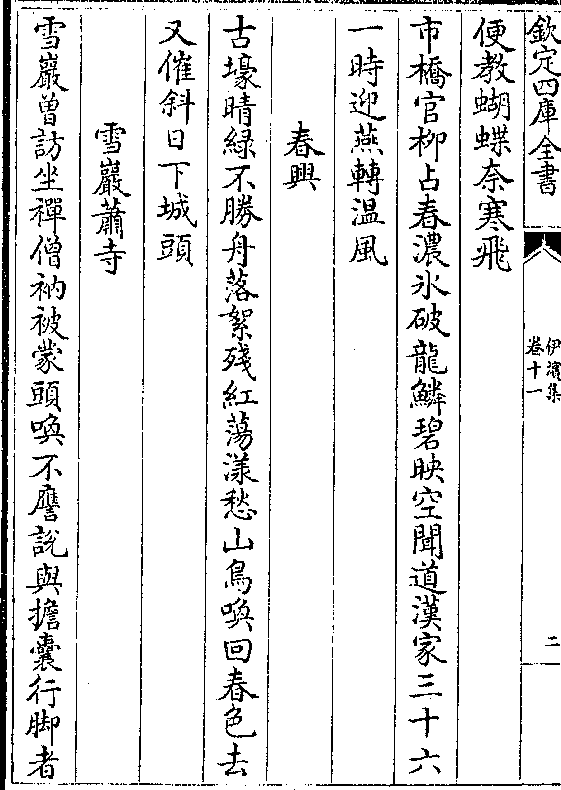 欽定四庫全書
伊濱集
卷十一
二
便教蝴蝶奈寒飛
市橋官柳占春濃氷破龍鱗碧映空聞道漢家三十六
一時迎燕轉温風
春興
古壕晴綠不勝舟落絮殘紅蕩漾愁山鳥喚回春色去
又催斜日下城頭
雪巖蕭寺
雪巖曾訪坐禪僧衲被蒙頭喚不譍說與擔囊行脚者